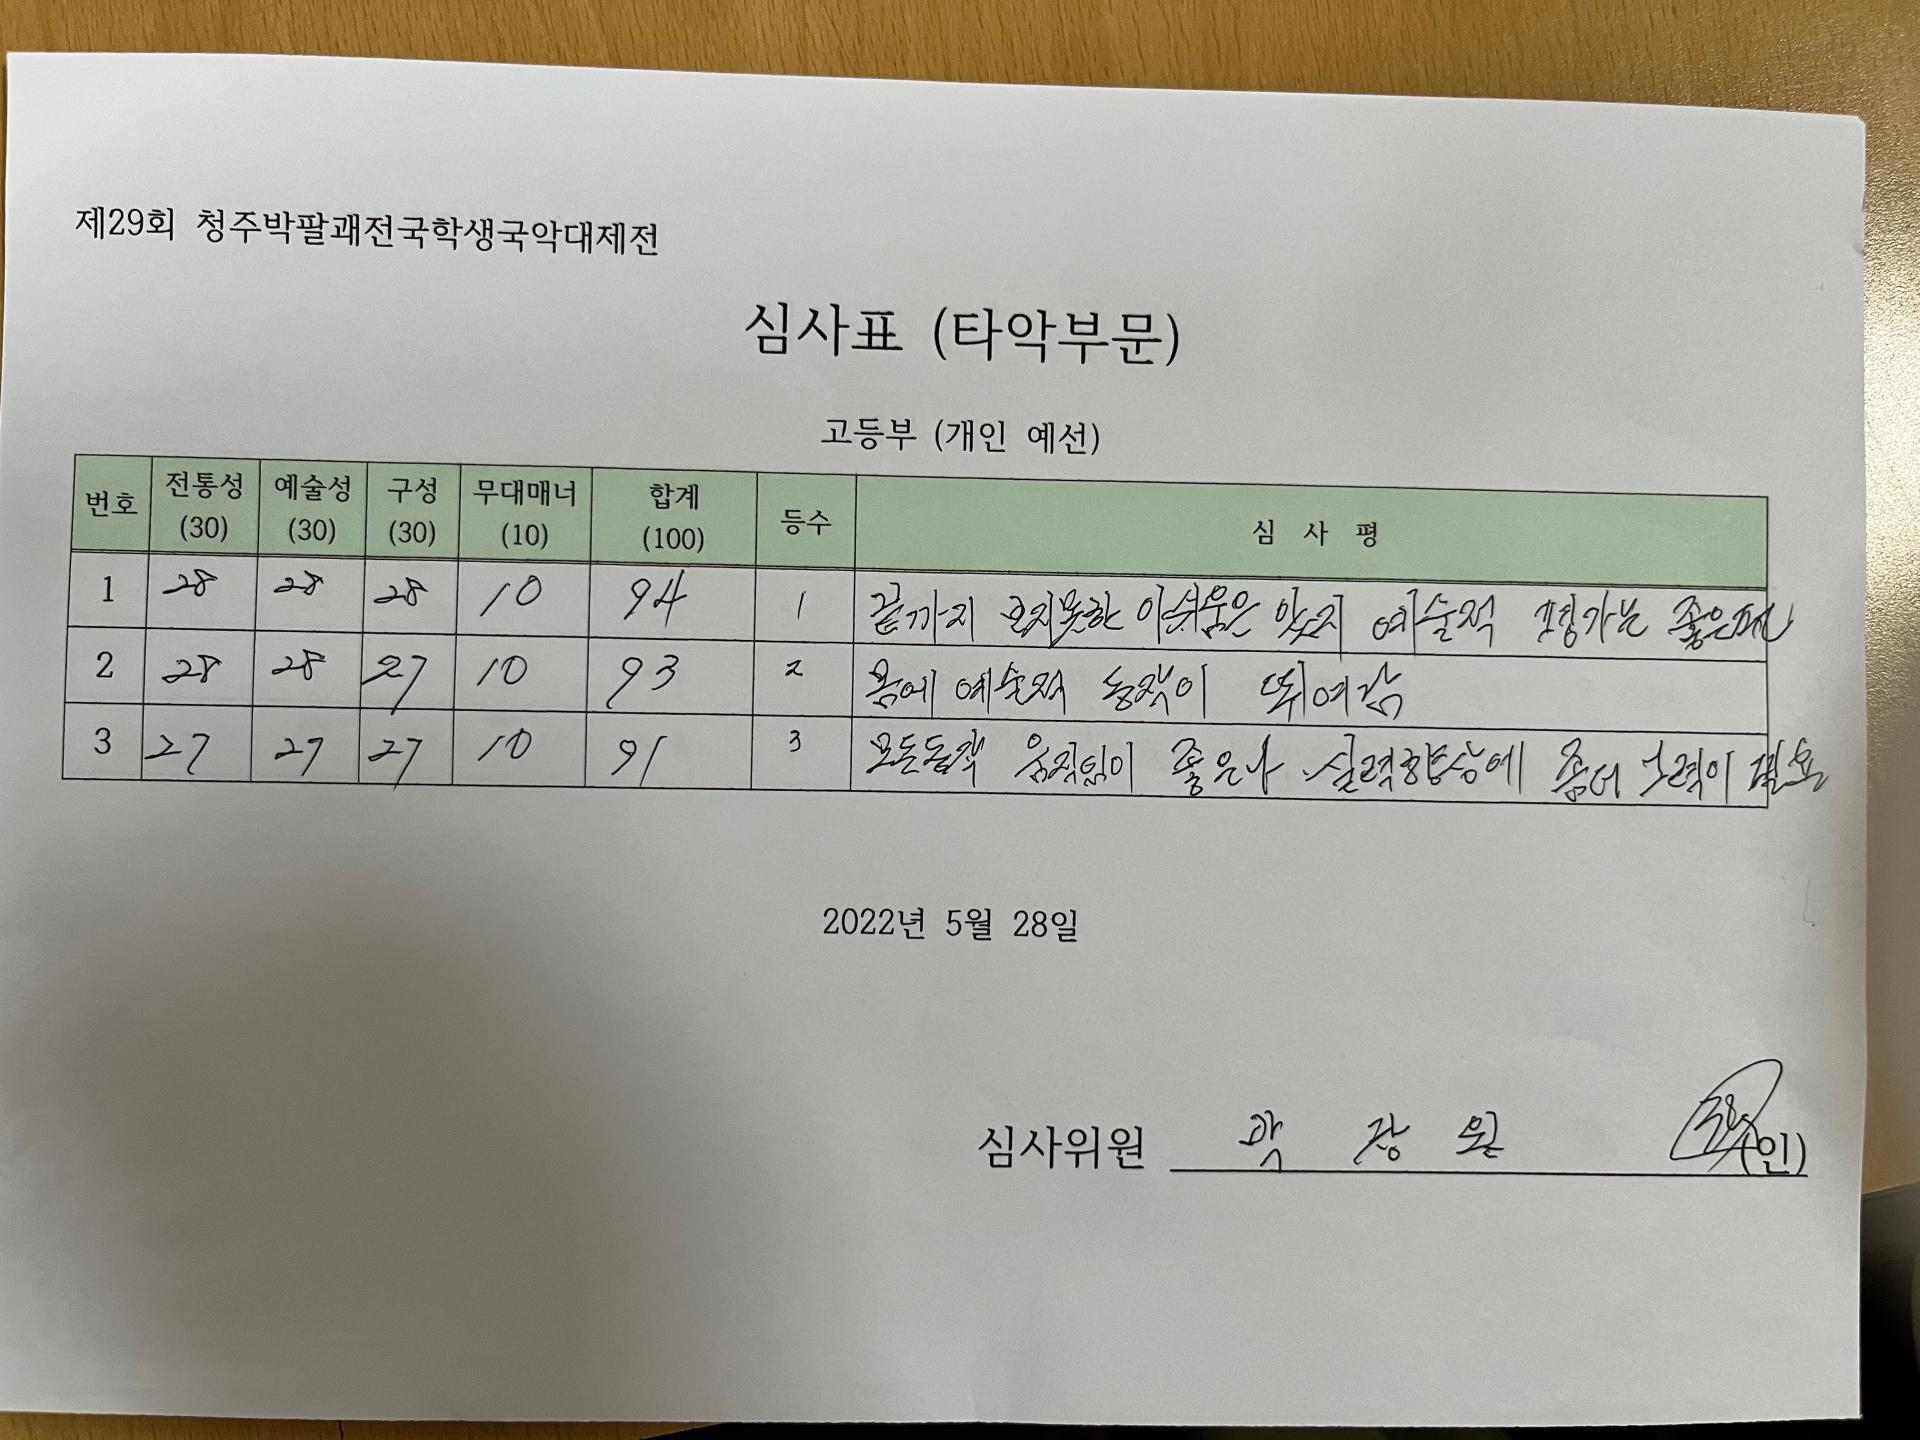 제29회 청주박팔괘전국학생국악대제전
심사표 (타악부문)
고등부 (개인 예선)
번호 전통성 (30) 예술성 (30) 구성 (30) 무대매너 (10) 합계 (100) 등수 심 사 평
1 28 28 28 10 94 1 끝까지 보지못한 아쉬움은 있지 예술적 평가는 좋은편
2 28 28 27 10 93 2 몸에 예술적 동작이 뛰여남
3 27 27 27 10 91 3 모든동작 움직임이 좋은나 실력향상에 좀더 노력이 필요
2022년 5월 28일
심사위원 (인)